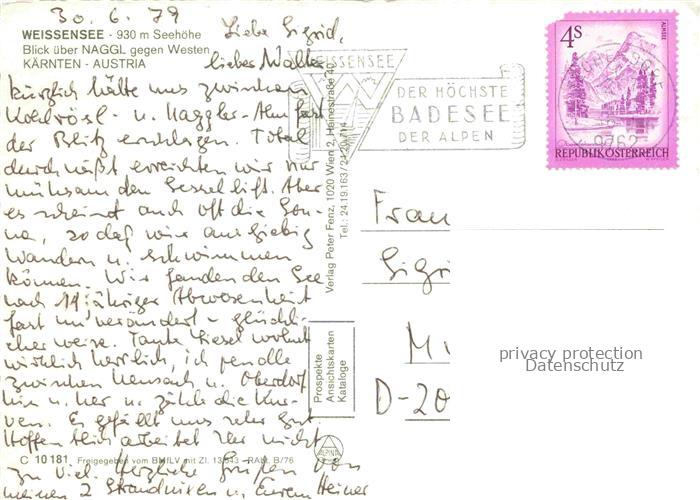 30. 6. 79
WEISSENSEE - 930 m Seehöhe
Blick über NAGGL gegen Westen
KÄRNTEN - AUSTRIA
Liebe Sigrid,
lieber Walter,
kürzlich hätte uns zwischen
Kohlrösl- u. Naggler-Alm fast
der Blitz erschlagen. Total
durchnäßt erreichten wir nur
mühsam den Sessellift. Aber
es scheint auch oft die Son-
ne, so daß wir ausgiebig
wandern u. schwimmen
können. Wir fanden den See
nach 11-jähriger Abwesenheit
fast unverändert - glückli-
cherweise. Tante Liesel wohnt
wirklich herrlich, ich pendle
zwischen Neusach u. Oberdorf
hin u. her u. zähle die Kur-
ven. Es gefällt uns sehr gut.
Hoffentlich arbeitet Ihr nicht
zu viel. Herzliche Grüße von
meinen 2 Strandnixen u. Eurem Heiner
C 10 181 Freigegeben vom BMfLV mit Zl. 13 RAbt. B/76
Verlag Peter Fenz, 1020 Wien 2, Heinestraße 4
Tel.: 24.19.163/24
Prospekte
Ansichtskarten
Kataloge
ALPINA
WEISSENSEE
DER HÖCHSTE
BADESEE
DER ALPEN
4S
ALMSEE
REPUBLIK ÖSTERREICH
9762
Frau
Sigri
M
D-20
privacy protection
Datenschutz